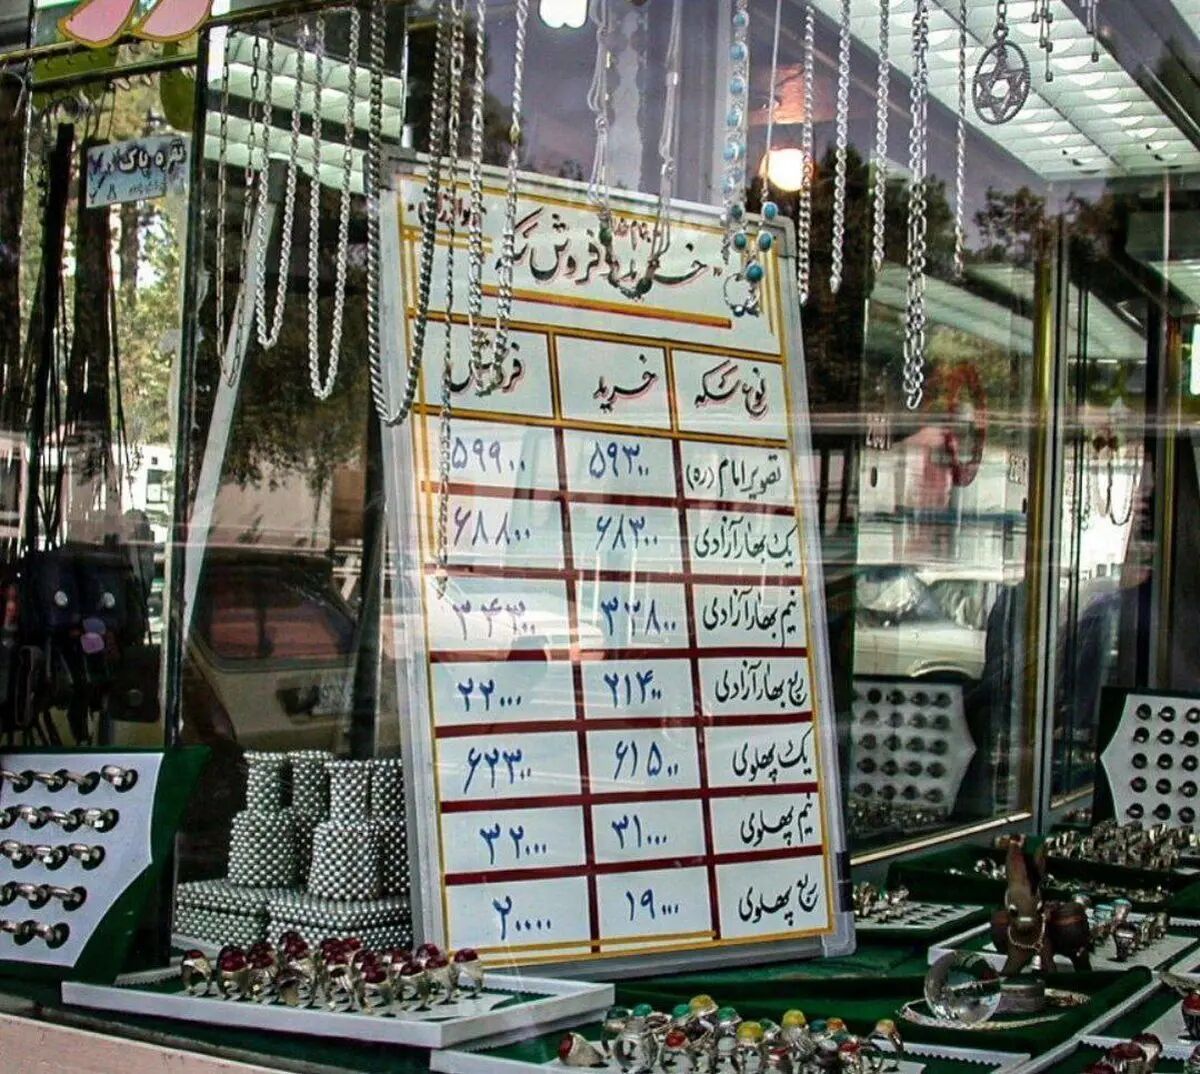 نقره پاک
بنام خدا
خرید و فروش سکه
نوع سکه خرید فروش
تصویر امام (ره) ۵۹۳۰۰ ۵۹۹۰۰
یک بهار آزادی ۶۸۳۰۰ ۶۸۸۰۰
نیم بهار آزادی ۳۳۸۰۰ ۳۴۳۰۰
ربع بهار آزادی ۲۱۴۰۰ ۲۲۰۰۰
یک پهلوی ۶۱۵۰۰ ۶۲۳۰۰
نیم پهلوی ۳۱۰۰۰ ۳۲۰۰۰
ربع پهلوی ۱۹۰۰۰ ۲۰۰۰۰